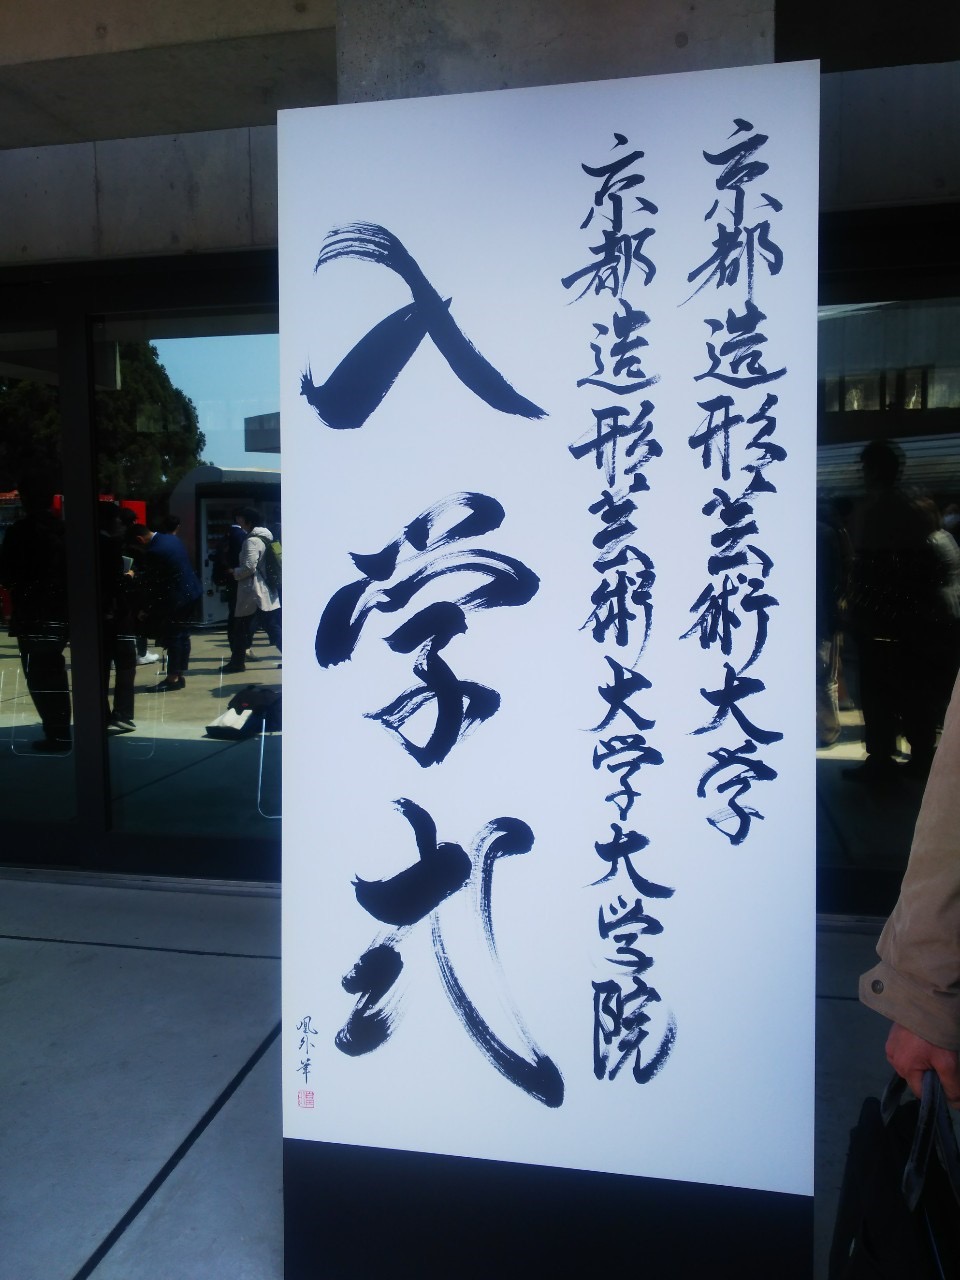 京都造形芸術大学
京都造形芸術大学大学院
入学式
鳳外筆